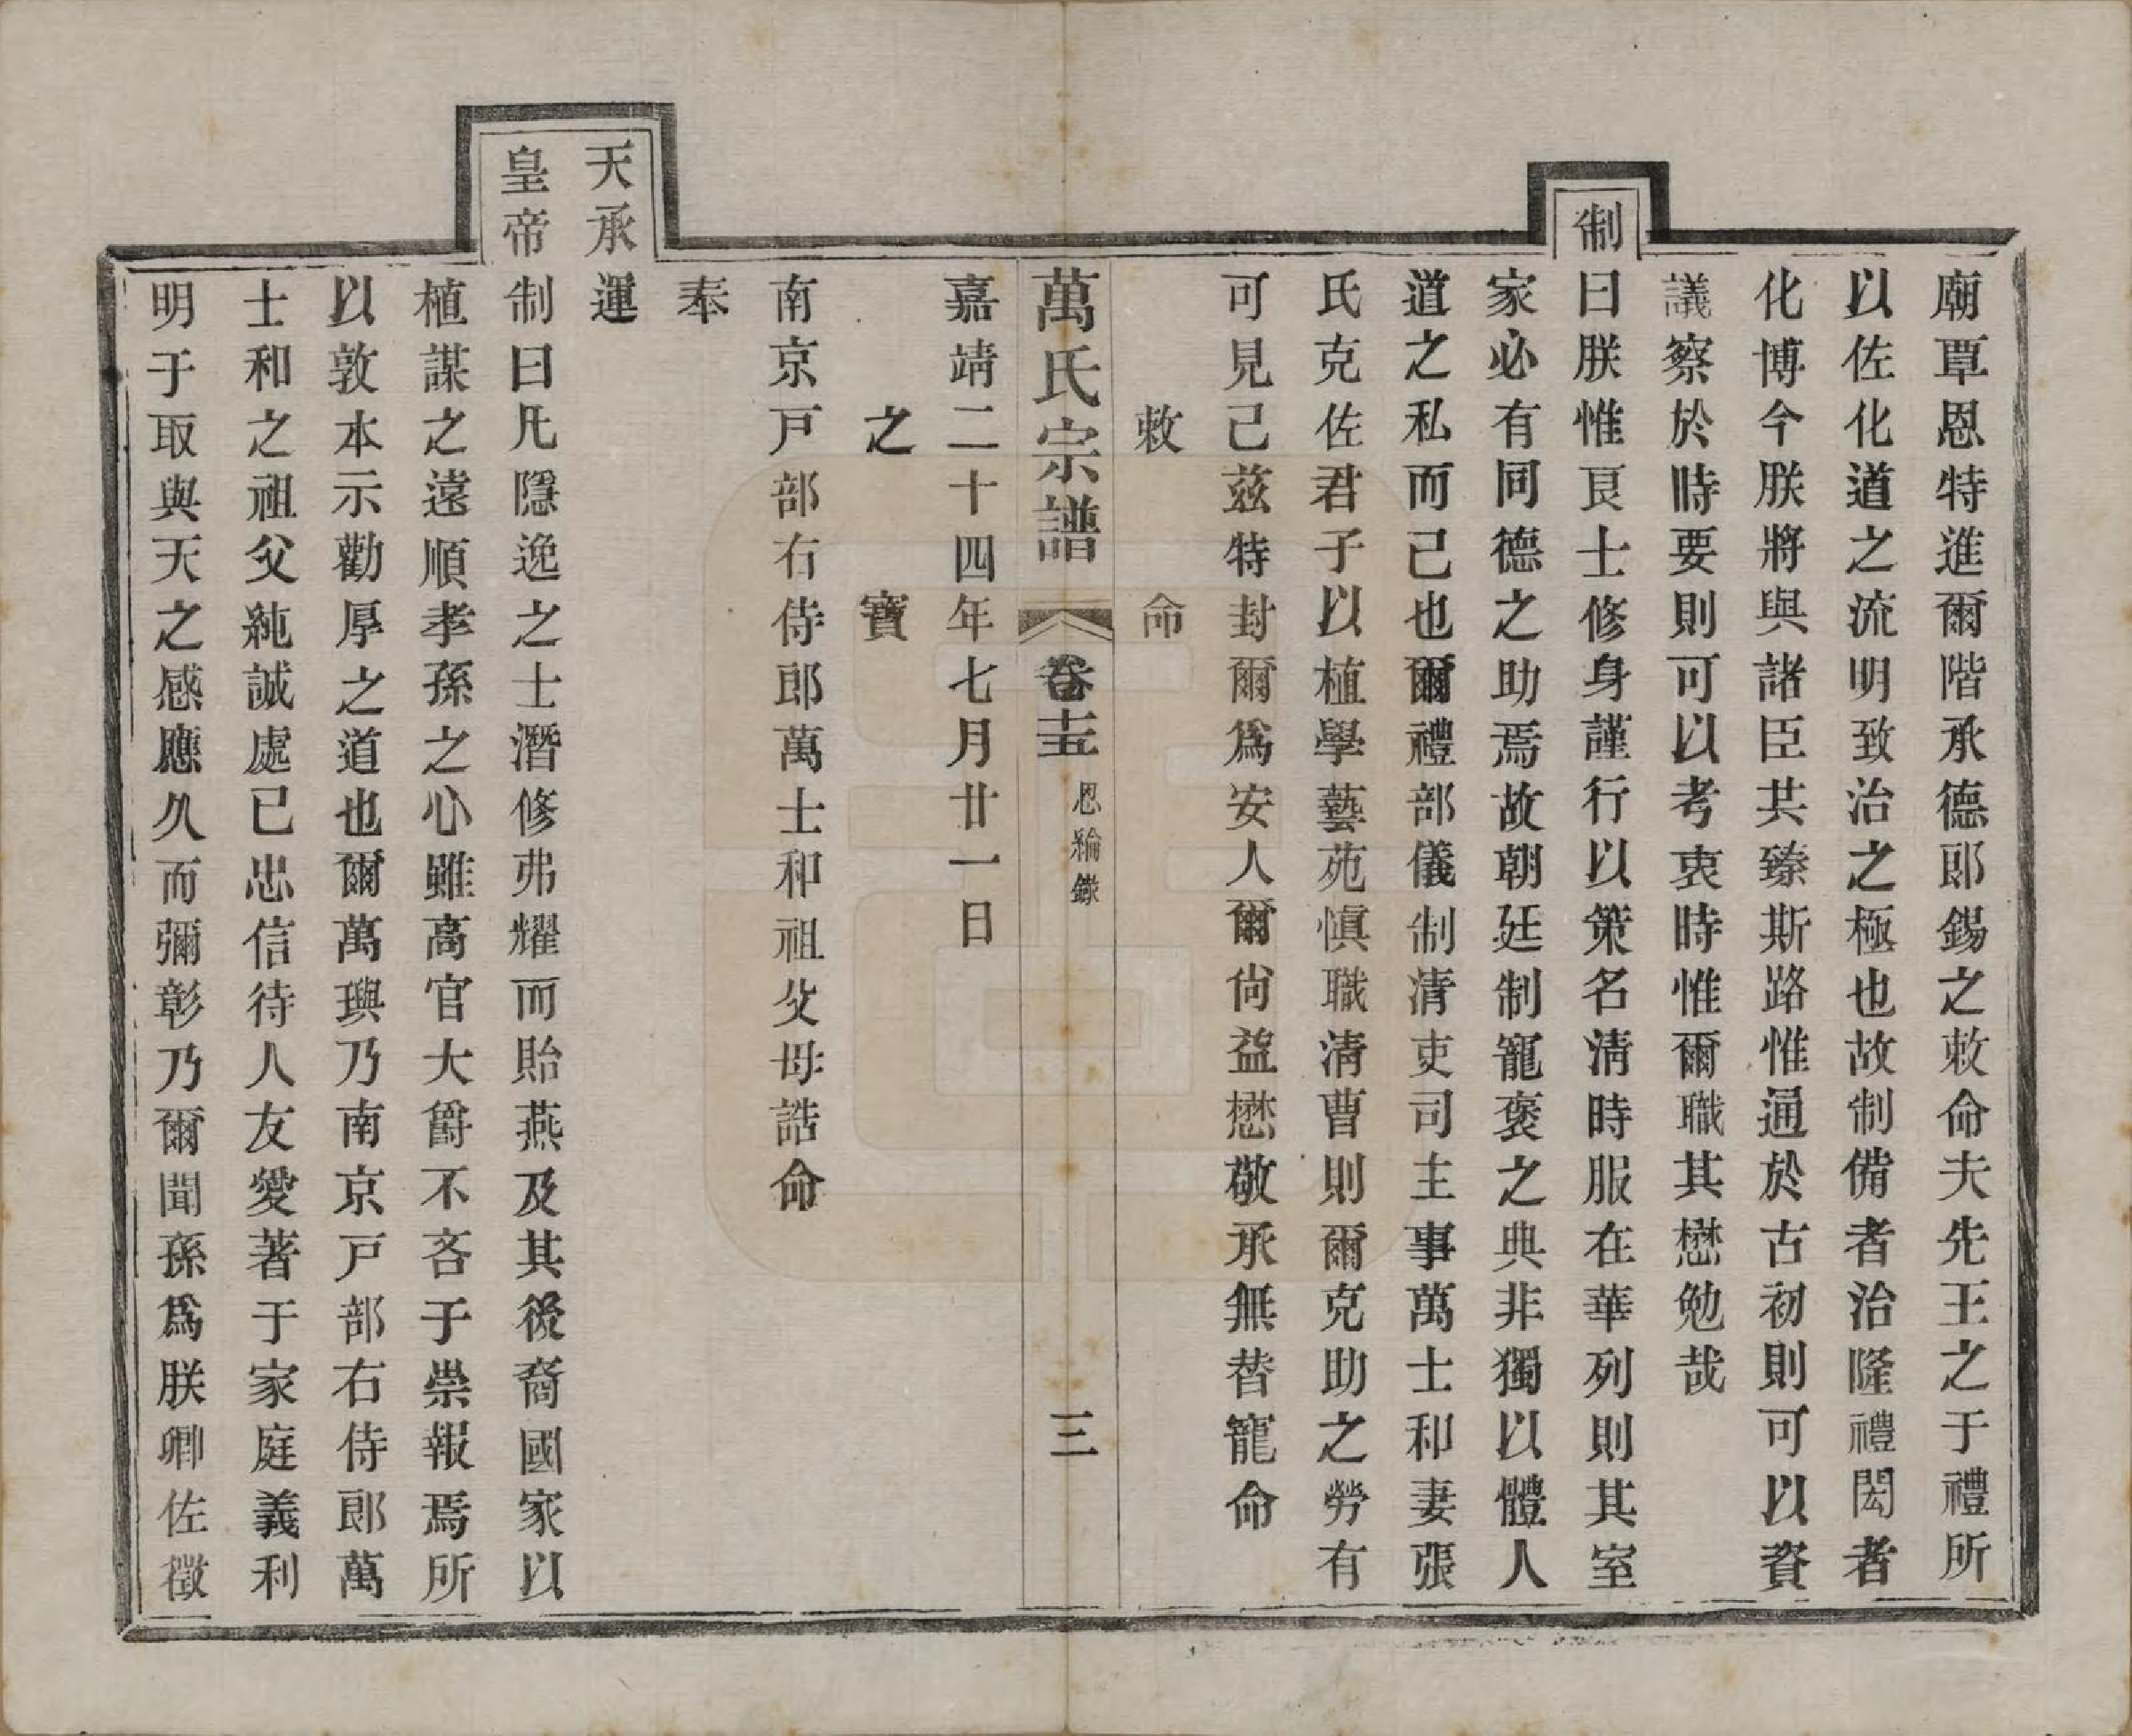 廟覃恩特進爾階承德郎錫之敕命夫先王之于禮所
以佐化道之流明致治之極也故制備者治隆禮閎者
化博今朕將與諸臣共臻斯路惟通於古初則可以資
議察於時要則可以考衷時惟爾職其懋勉哉
制曰朕惟良士修身謹行以策名清時服在華列則其室
家必有同德之助焉故朝廷制寵褒之典非獨以體人
道之私而己也爾禮部儀制清吏司主事萬士和妻張
氏克佐君子以植學藝苑慎職清曹則爾克助之勞有
可見己茲特封爾爲安人爾尙益懋敬承無替寵命
敕命
萬氏宗譜 卷十五 恩綸錄 三
嘉靖二十四年七月廿一日
之寶
南京戸部右侍郎萬士和祖父母誥命
奉
天承運
皇帝制曰凡隱逸之士潛修弗耀而貽燕及其後裔國家以
植謀之遠順孝孫之心雖高官大爵不吝于崇報焉所
以敦本示勸厚之道也爾萬璵乃南京戸部右侍郎萬
士和之祖父純誠處已忠信待人友愛著于家庭義利
明于取與天之感應久而彌彰乃爾聞孫爲朕卿佐徵